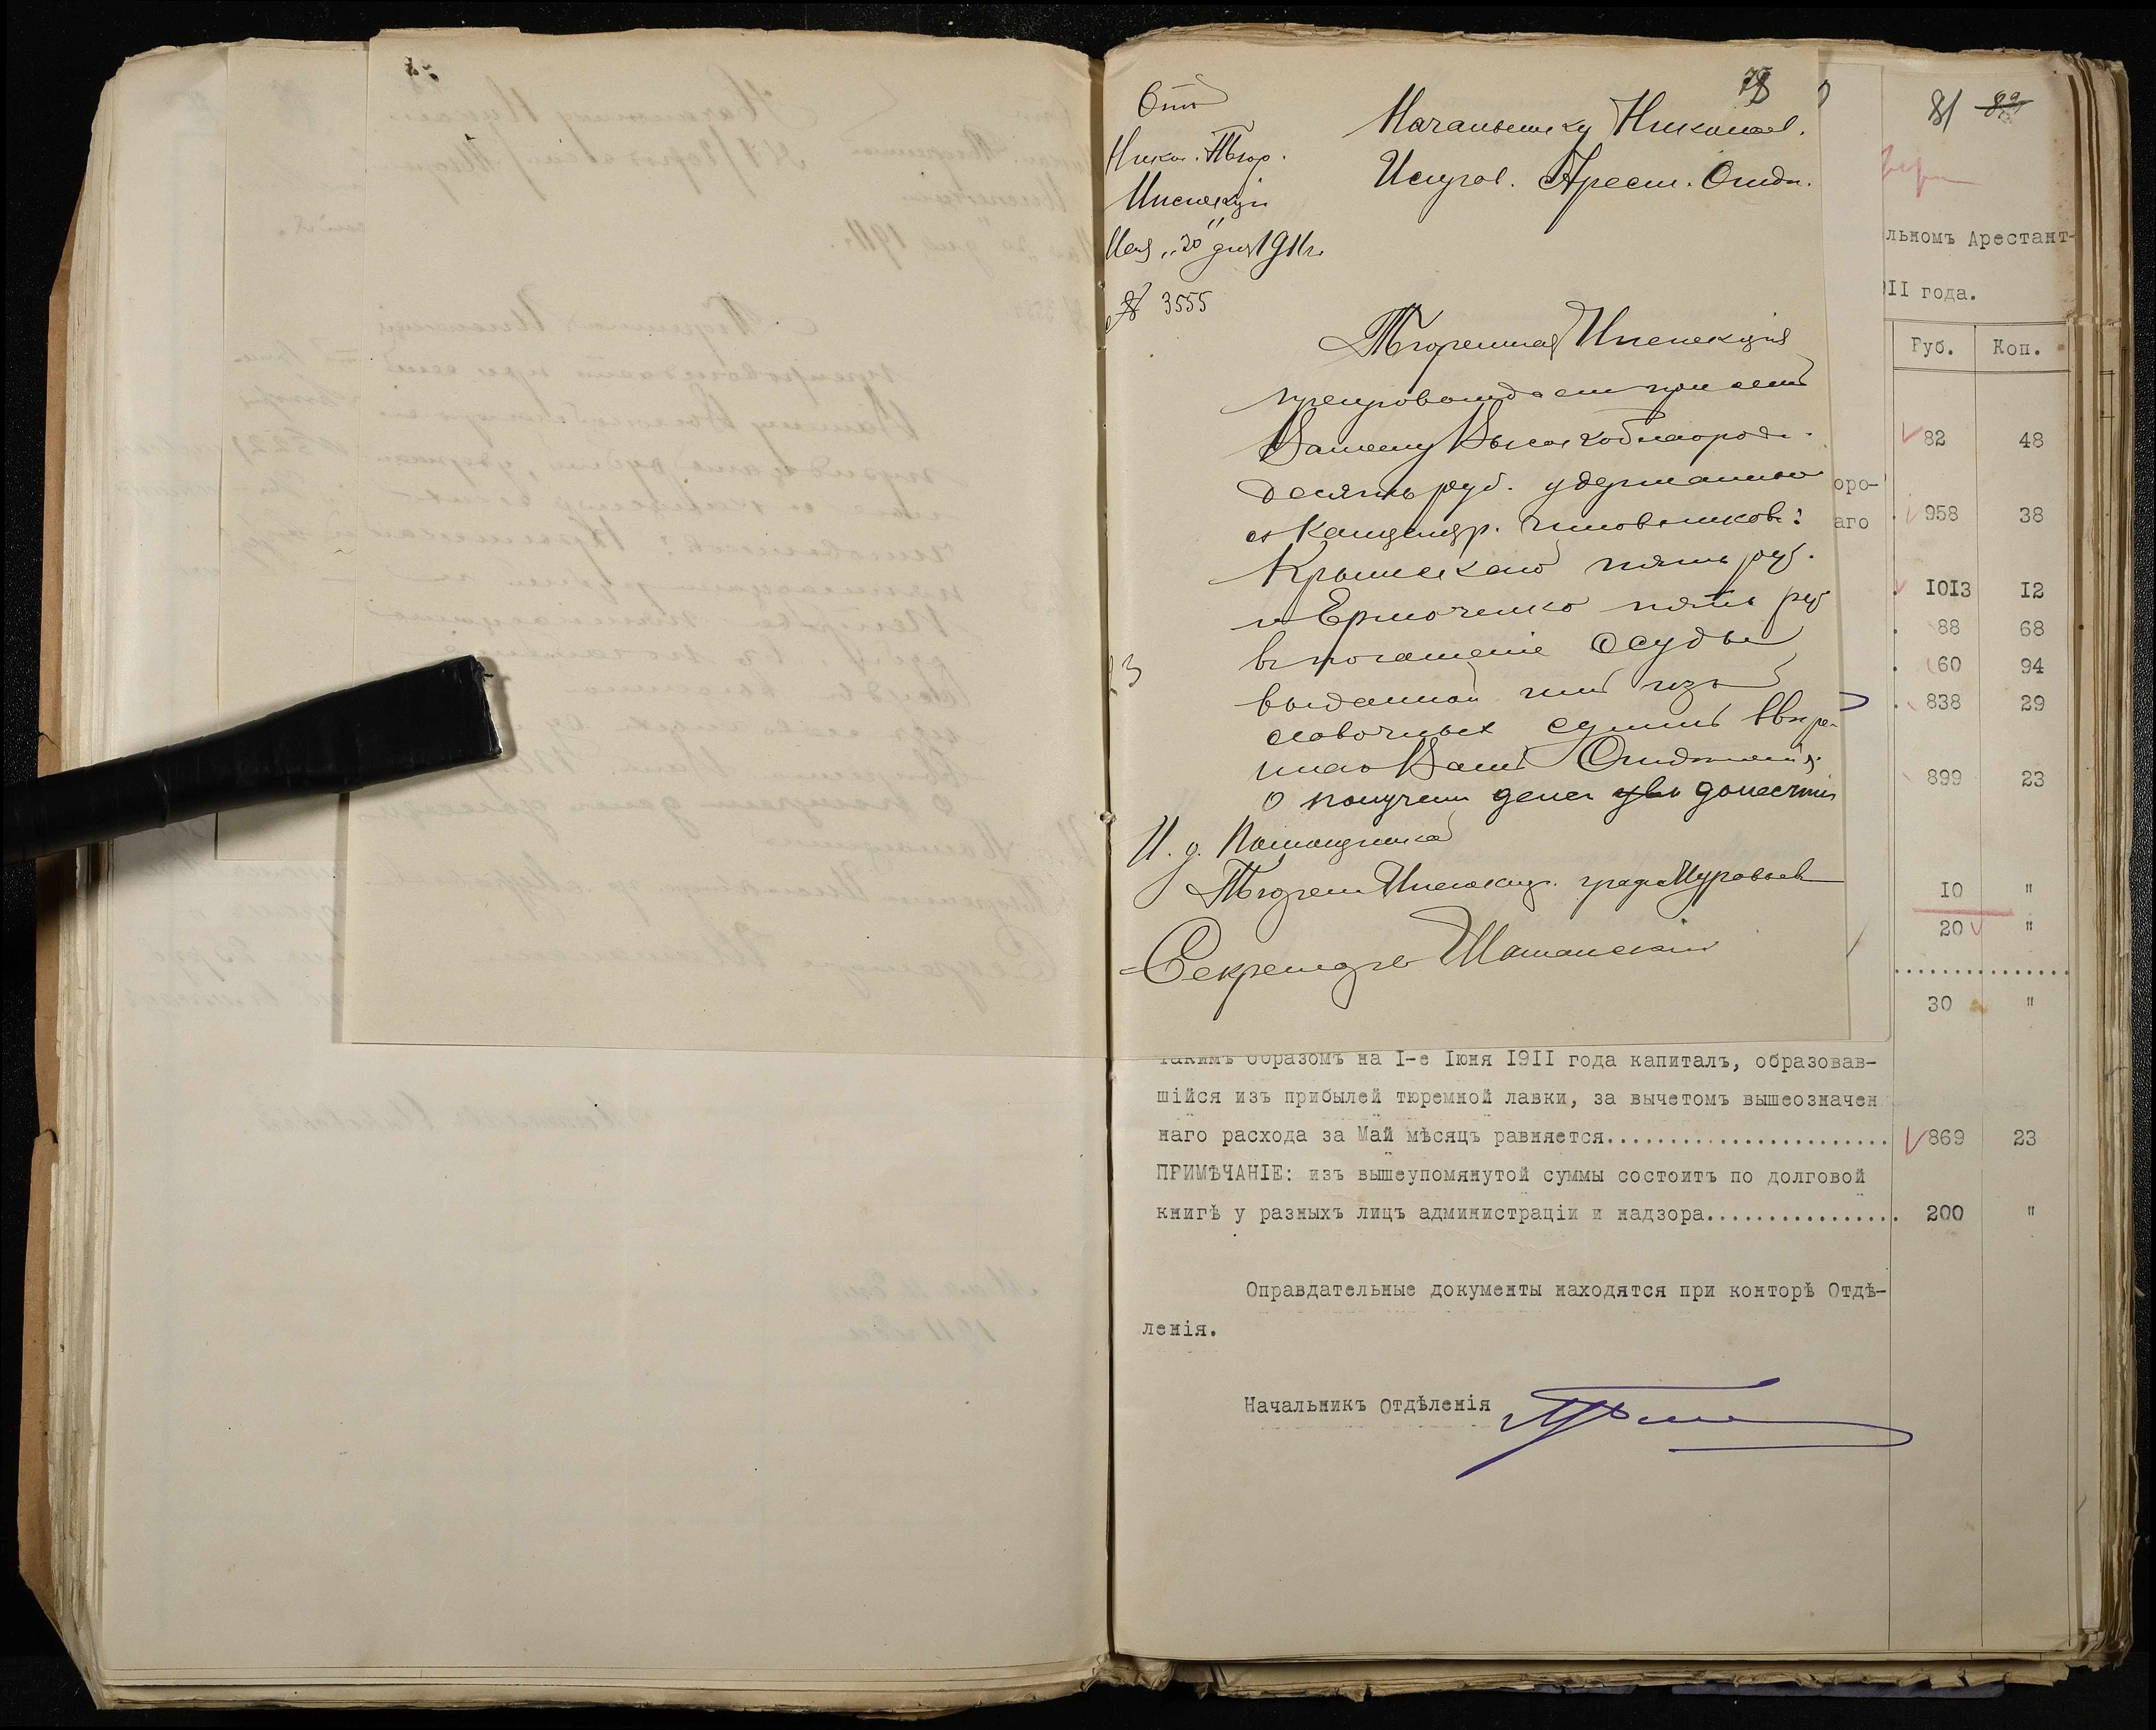 78
Отъ
Никол. Тюр.
Инспекціи
Мая „20" дня 1911 г.
№ 3555
Начальнику Николаев.
Исправ. Арест. Отдѣ.
Тюремная Инспекція
препровождаетъ при семъ
Вашему Высокоблагород.
десять руб. удержанные
съ Канцеляр. чиновниковъ:
Крыжскаго пять руб.
и Ермоченко пять руб
въ погашеніе ссуды
выданной имъ изъ
лавочныхъ суммъ ввѣрен
наго Вамъ Отдѣленія.
О полученіи денегъ донести
И. д. Помощника
Тюремн Инспектор. графъ Муравьевъ
Секретарь
81 82
льномъ Арестант-
1911 года.
Руб. Коп.
82 48
оро-
аго 958 38
1013 12
88 68
60 94
838 29
899 23
10 "
20 "
30 "
Такимъ образомъ на I-е Іюня 1911 года капиталъ, образовав-
шійся изъ прибылей тюремной лавки, за вычетомъ вышеозначен
наго расхода за Май мѣсяцъ равняется........................ 869 23
ПРИМѢЧАНІЕ: изъ вышеупомянутой суммы состоитъ по долговой
книгѣ у разныхъ лицъ администраціи и надзора................. 200 "
Оправдательные документы находятся при конторѣ Отдѣ-
ленія.
Начальникъ Отдѣленія